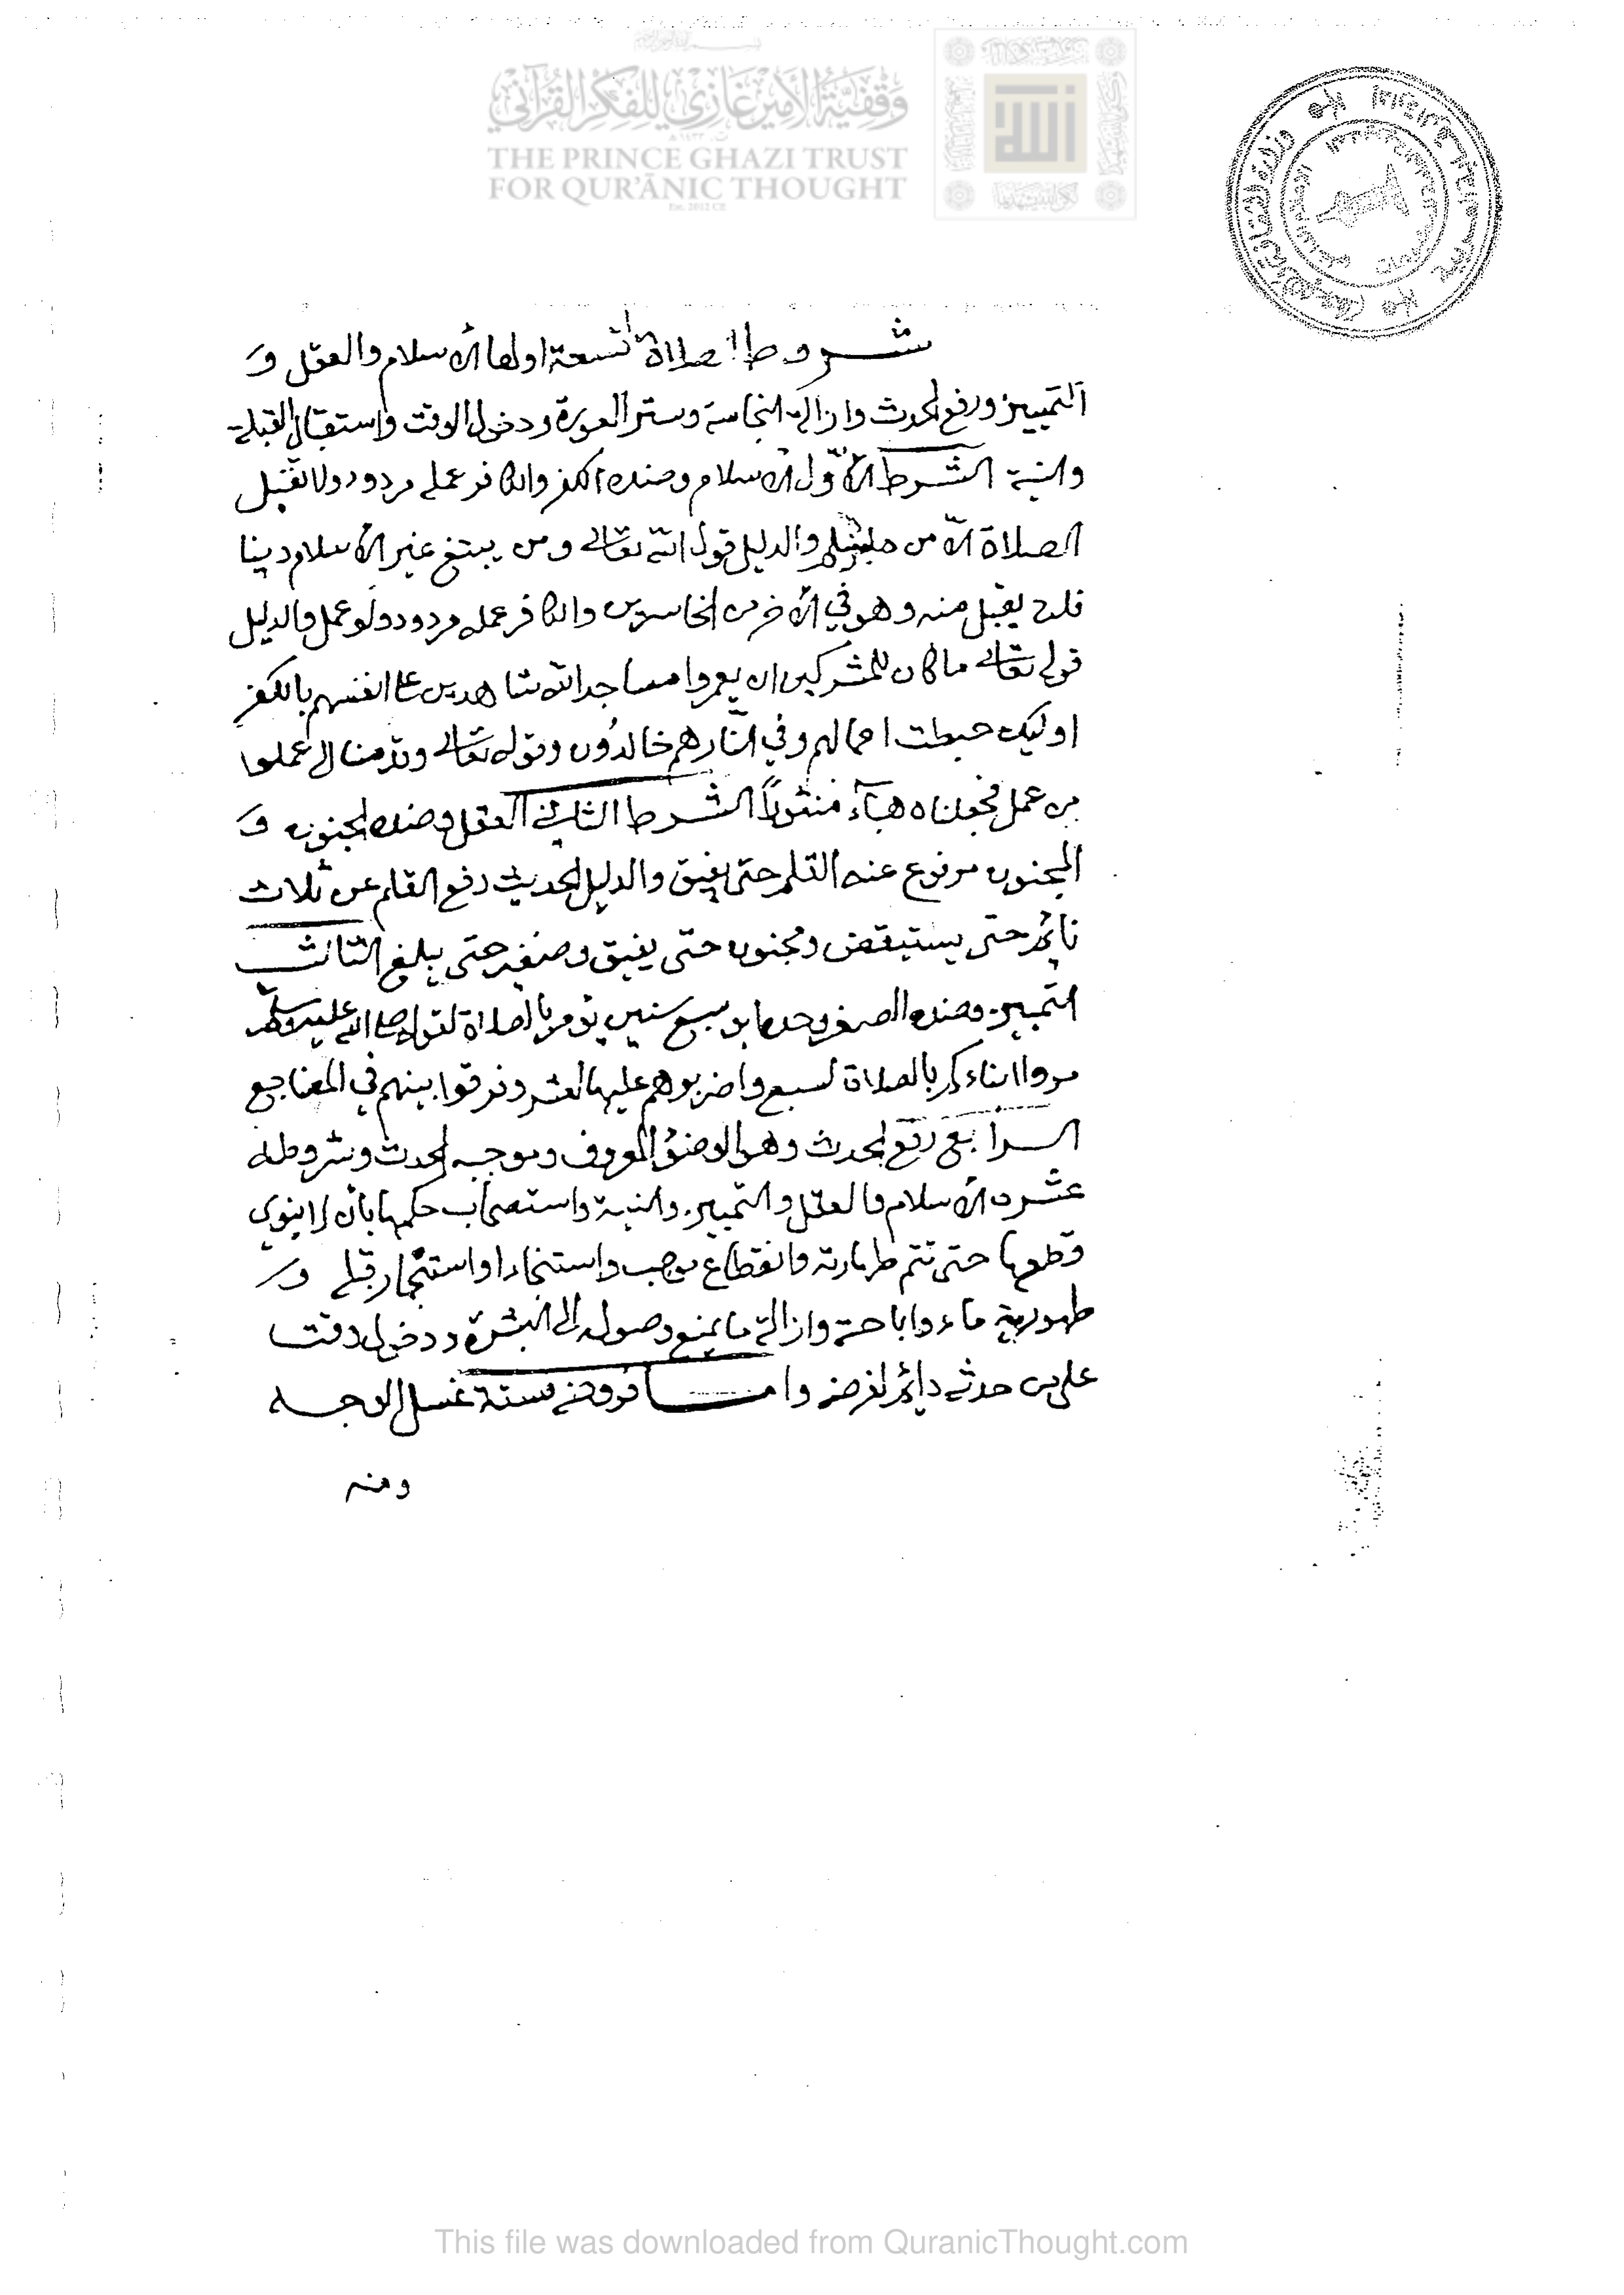 وقفية الأمير غازي للفكر القرآني
THE PRINCE GHAZI TRUST
FOR QUR'ĀNIC THOUGHT
Est. 2012 CE
الله
شروط الصلاة تسعة اولها الأسلام والعقل و
التمييز ورفع الحدث وازالة النجاسة وستر العورة ودخول الوقت واستقبال القبلة
والنية الشرط الأوّل الأسلام وضده الكفر والكافر عمله مردود ولا تقبل
الصلاة الّا من مسلم والدليل قول الله تعالى ومن يبتغ غير الأسلام دينا
فلن يقبل منه وهو في الأخرة من الخاسرين والكافر عمله مردود ولو عمل والدليل
قوله تعالى ما كان للمشركين ان يعمروا مساجد الله شاهدين على انفسهم بالكفر
اوليك حبطت اعمالهم وفي النّار هم خالدُون وقوله تعالى وقدمنا الى ما عملوا
من عمل فجعلناه هبآء منثوراً الشرط الثاني العقل وضده الجنون و
المجنون مرفوع عنه القلم حتى يفيق والدليل الحديث رفع القلم عن ثلاث
نائم حتى يستيقض ومجنون حتى يفيق وصغير حتى يبلغ الثالث
التمييز وضده الصغر وحده ابن سبع سنين يؤمر بالصلاة لقوله صلى الله عليه وسلم
مروا ابناءكم بالصلاة لسبع واضربوهم عليها لعشر وفرقوا بينهم في المضاجع
الرابع رفع الحدث وهو الوضؤ المعروف وموجبه الحدث وشروطه
عشره الأسلام والعقل والتمييز والنية واستصحاب حكمها بأن لا ينوي
قطعها حتى تتم طهارته وانقطاع موجب واستنجاء او استجمار قبله و
طهورية ماء واباحته وازالة ما يمنع وصوله الى البشرة ودخول وقت
على من حدثه دائم لفرضه وامـا فروضه فستة غسل الوجه
ومنه
This file was downloaded from QuranicThought.com